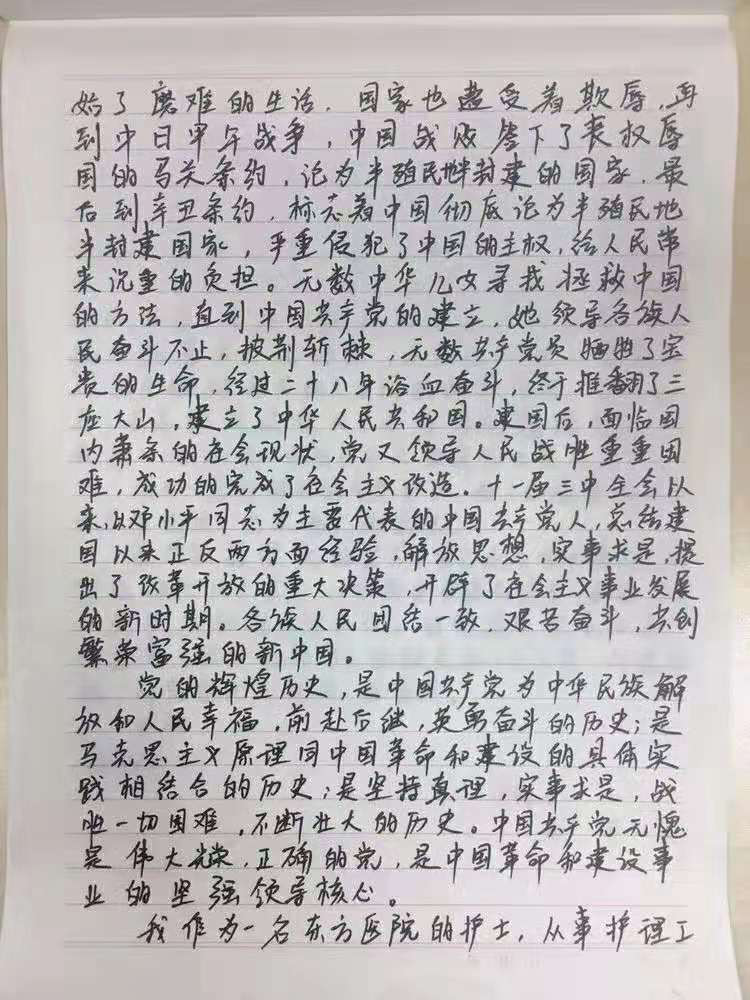 始了磨难的生活，国家也遭受着欺辱，再
到中日甲午战争，中国战败签下了丧权辱
国的马关条约，沦为半殖民地半封建的国家，最
后到辛丑条约，标志着中国彻底沦为半殖民地
半封建国家，严重侵犯了中国的主权，给人民带
来沉重的负担。无数中华儿女寻找拯救中国
的方法，直到中国共产党的建立，她领导各族人
民奋斗不止，披荆斩棘，无数共产党员牺牲了宝
贵的生命，经过二十八年浴血奋斗，终于推翻了三
座大山，建立了中华人民共和国。建国后，面临国
内萧条的社会现状，党又领导人民战胜重重困
难，成功的完成了社会主义改造。十一届三中全会以
来，以邓小平同志为主要代表的中国共产党人，总结建
国以来正反两方面经验，解放思想，实事求是，提
出了改革开放的重大决策，开辟了社会主义事业发展
的新时期。各族人民团结一致，艰苦奋斗，共创
繁荣富强的新中国。
党的辉煌历史，是中国共产党为中华民族解
放和人民幸福，前赴后继，英勇奋斗的历史；是
马克思主义原理同中国革命和建设的具体实
践相结合的历史；是坚持真理，实事求是，战
胜一切困难，不断壮大的历史。中国共产党无愧
是伟大光荣，正确的党，是中国革命和建设事
业的坚强领导核心。
我作为一名东方医院的护士，从事护理工